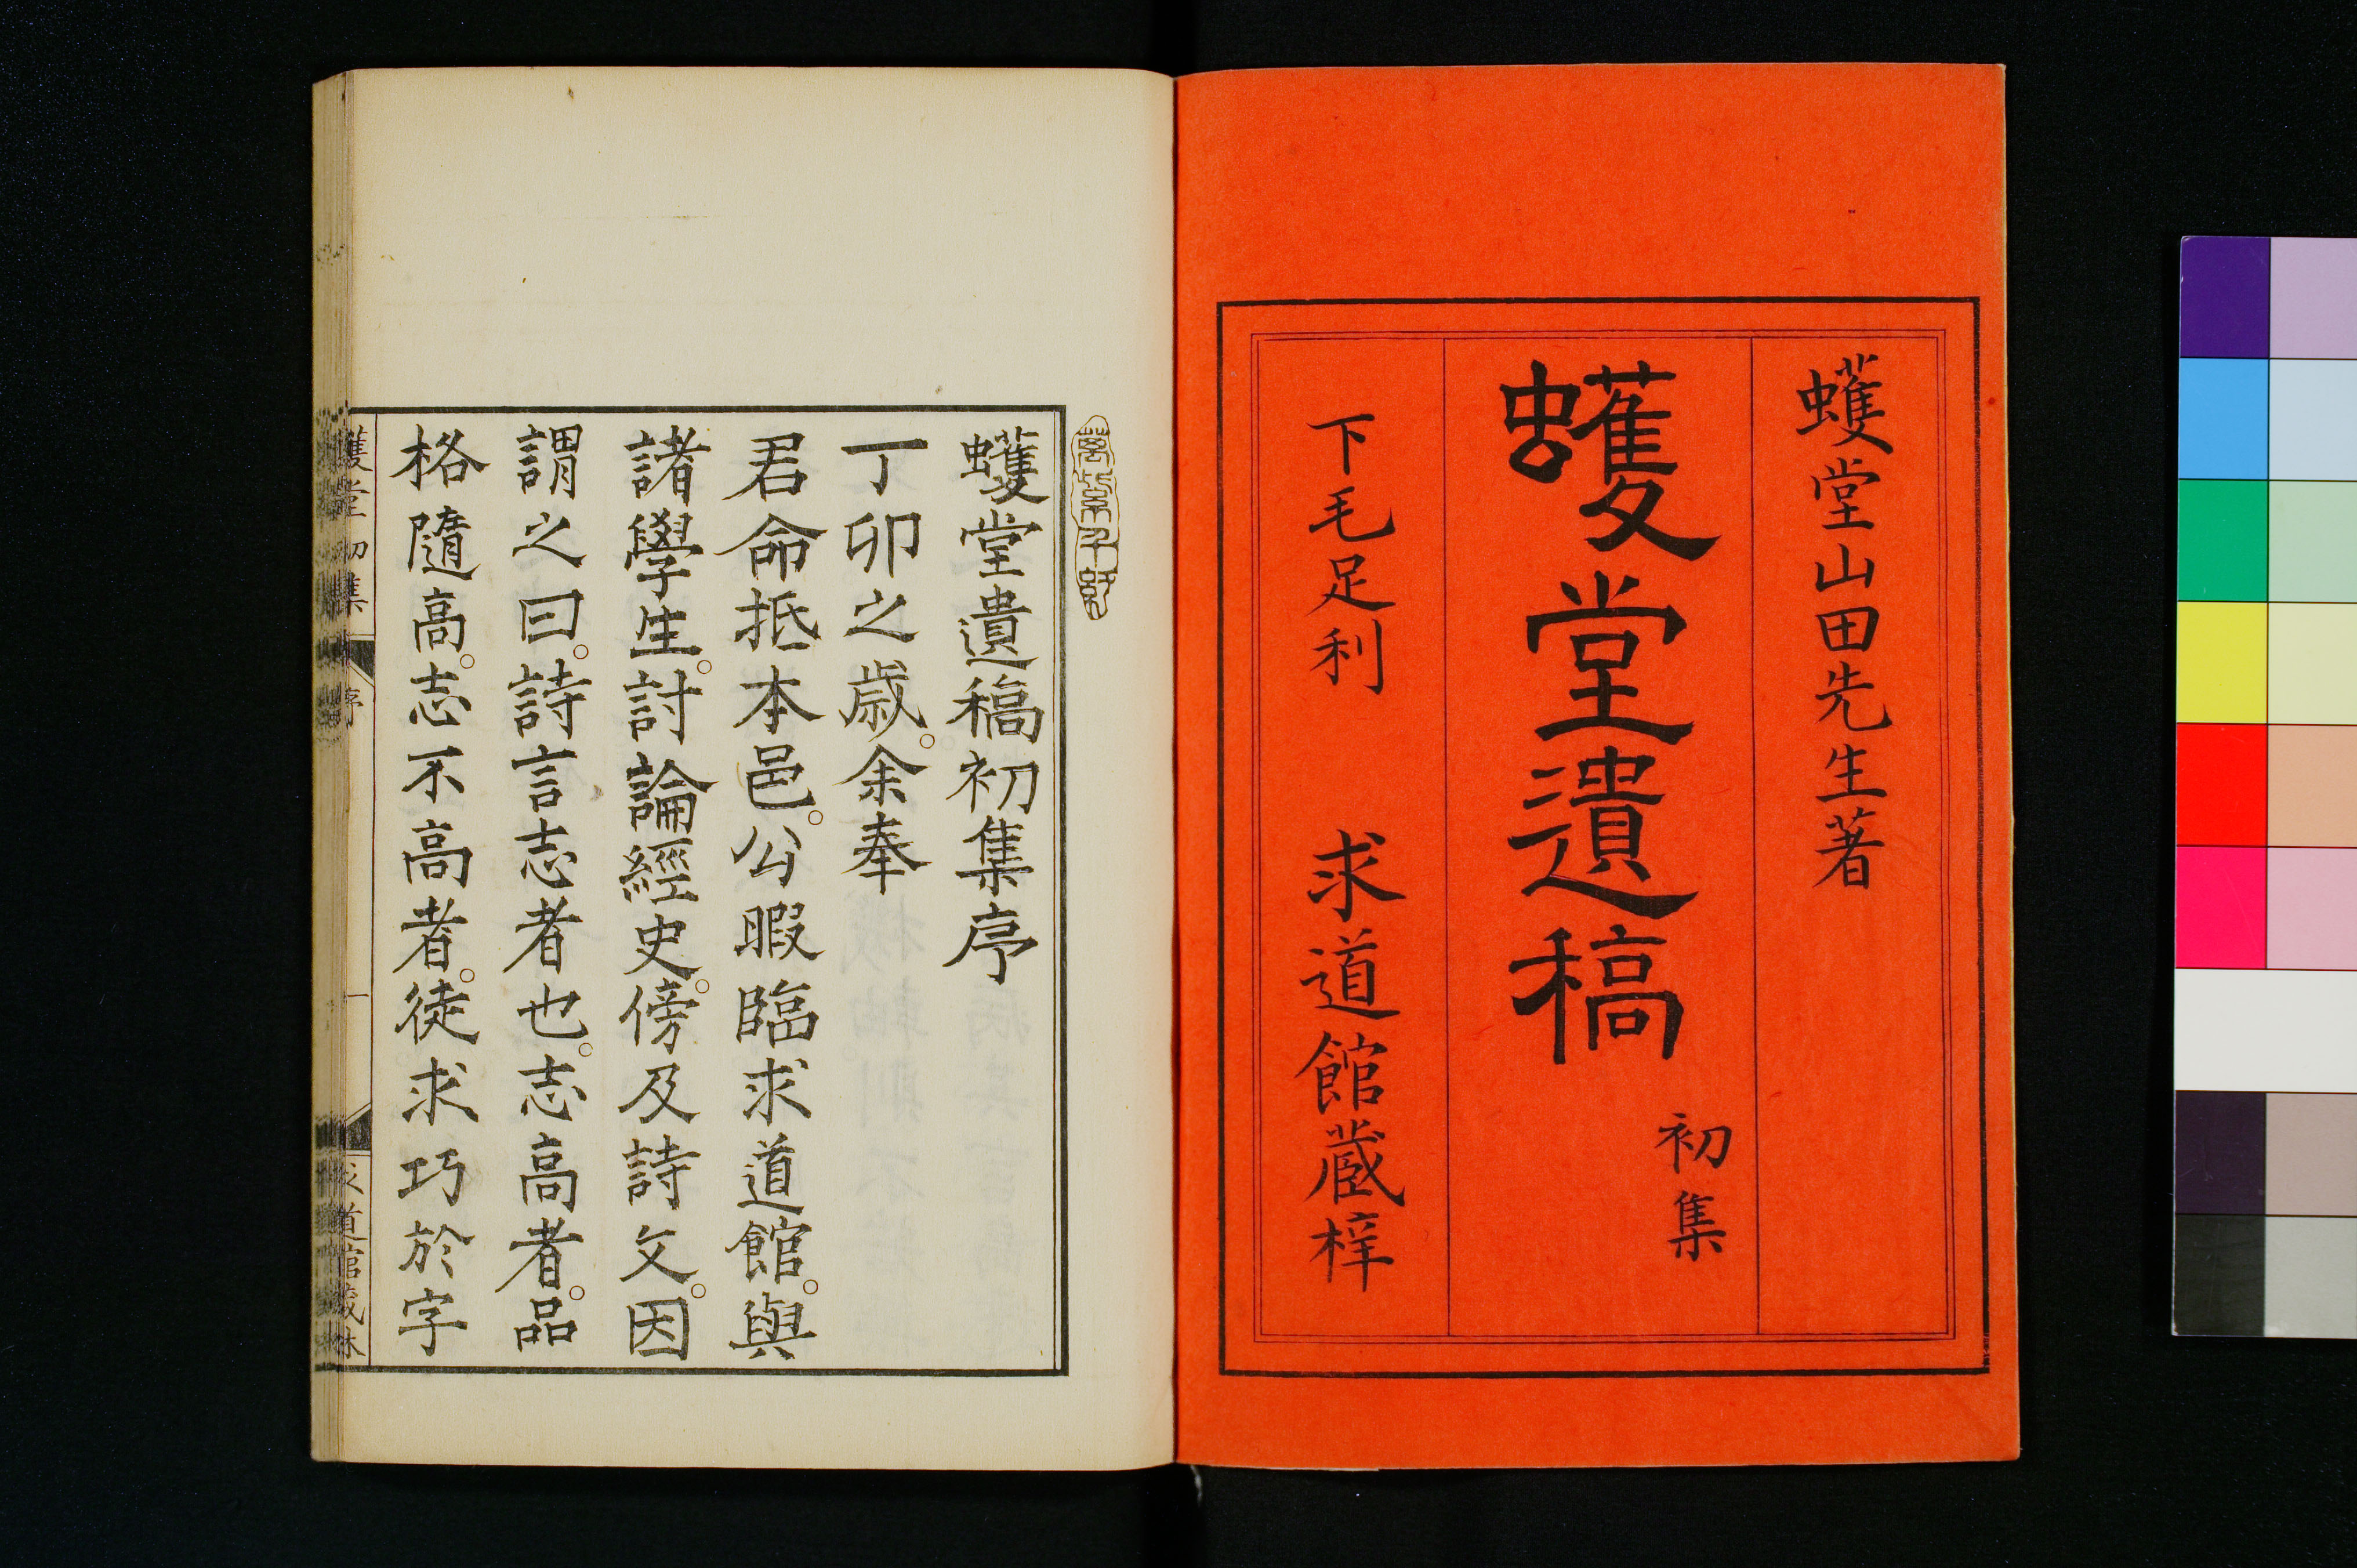 蠖堂山田先生著
蠖堂遺稿
初集
下毛足利 求道館蔵梓
蠖堂遺稿初集序
丁卯之歳。余奉
君命抵本邑。公暇臨求道館。與
諸學生。討論經史。傍及詩文。因
謂之曰。詩言志者也。志高者。品
格隨高。志不高者。徒求巧於字
蠖堂初集 序 一 求道館蔵梓